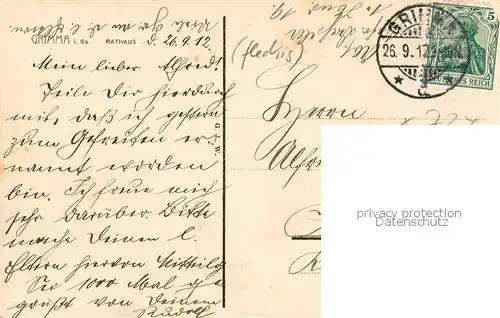 GRIMMA i. Sa. RATHAUS
d. 26.9.12
Mein lieber Alfred!
Teile Dir hierdurch
mit, daß ich gestern
zum Gefreiten er-
nannt worden
bin. Ich freue mich
sehr darüber. Bitte
mache Deinen l.
Eltern hiervon Mitteilg
Sei 1000 Mal ge
grüßt von Deinem
Rudolf
G. J. W.
GRIMMA
26. 9. 12
5
DEUTSCHES REICH
Herrn
Alfre
privacy protection
Datenschutz